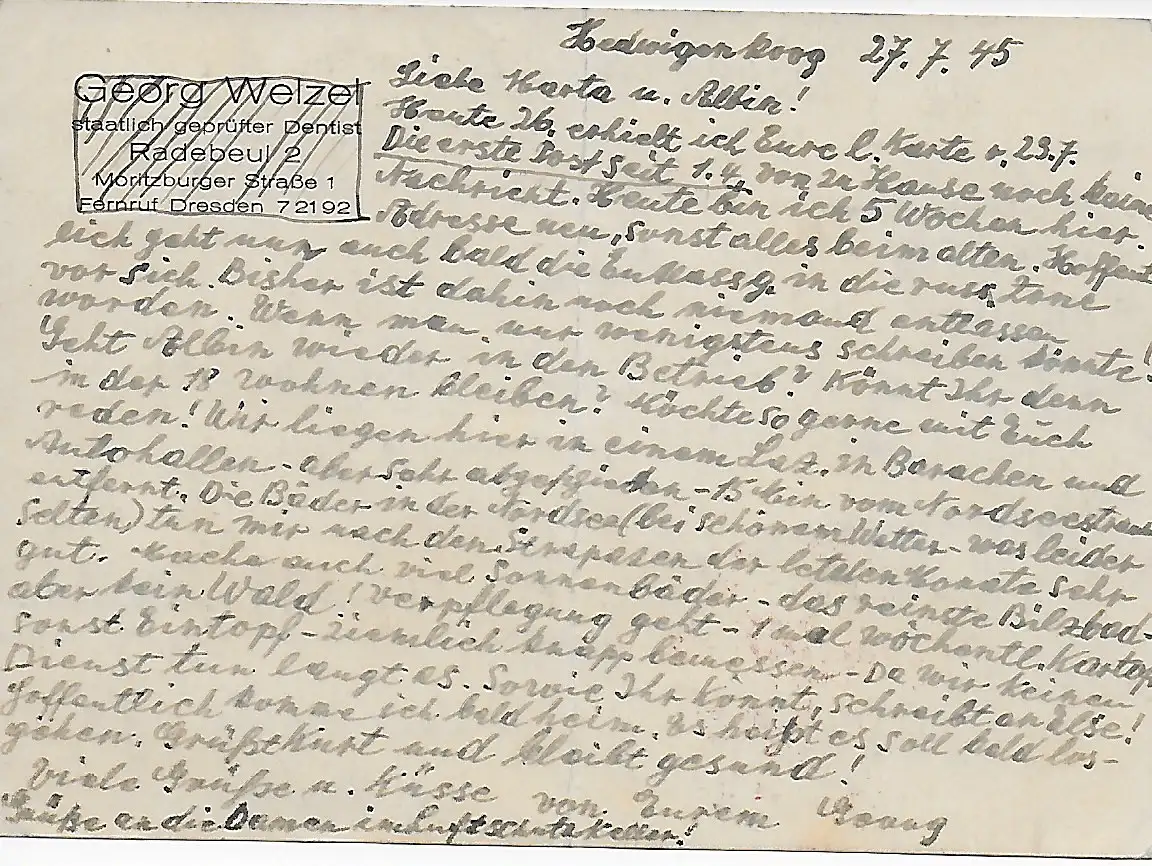 Hedwigenkoog 27.7.45
Georg Welzel
staatlich geprüfter Dentist
Radebeul 2
Moritzburger Straße 1
Fernruf Dresden 7 21 92
Liebe Marta u. Albin!
Heute 26. erhielt ich Eure l. Karte v. 23.7.
Die erste Post seit 1.4. Von zu Hause noch keine
Nachricht. Heute bin ich 5 Wochen hier.
Adresse neu, sonst alles beim alten. Hoffent-
lich geht nun auch bald die Entlassg. in die russ. Zone
vor sich. Bisher ist dahin noch niemand entlassen
worden. Wenn man nur wenigstens schreiben könnte!
Geht Albin wieder in den Betrieb? Könnt Ihr denn
in der 18 wohnen bleiben? Möchte so gerne mit Euch
reden! Wir liegen hier in einem Laz. in Baracken und
Autohallen - aber sehr abgeschieden - 15 Min vom Nordseestrand
entfernt. Die Bäder in der Nordsee (bei schönem Wetter - was leider
selten) tun mir nach den Strapazen der letzten Monate sehr
gut. Mache auch viel Sonnenbäder - das reinste Bilzbad -
aber kein Wald! Verpflegung geht - 1 mal wöchentl. Kartoff
sonst Eintopf - ziemlich knapp bemessen - Da wir keinen
Dienst tun langt es. Sowie Ihr könnt, schreibt an Else!
Hoffentlich komme ich bald heim. Es heißt es soll bald los-
gehen. Grüßt Kurt und bleibt gesund!
Viele Grüße u. Küsse von Eurem Georg
Grüße an die Damen im Luftschutzkeller!